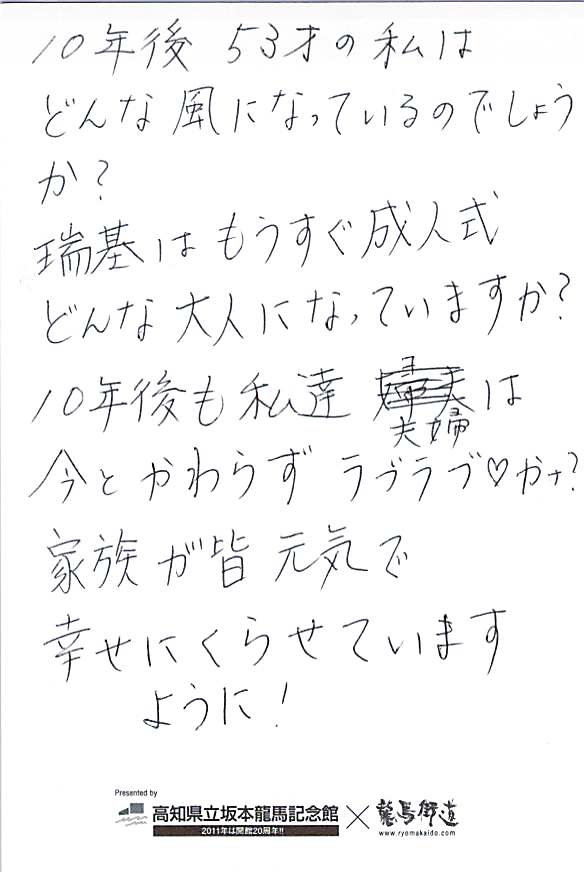 10年後 53才の私は
どんな風になっているのでしょう
か?
瑞基はもうすぐ成人式
どんな大人になっていますか?
10年後も私達 婦夫は
夫婦
今とかわらず ラブラブ♡かナ?
家族が皆 元気で
幸せにくらせています
ように!
Presented by
高知県立坂本龍馬記念館 × 龍馬街道
2011年は開館20周年!!
www.ryomakaido.com